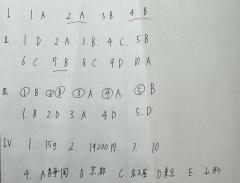 I 1 A 2 A 3 B 4 B
II 1 D 2 A 3. B. 4 C. 5 B
6 C 7 B 8 C 9. D. 10. A
III ① B ② B ③ A ④ A ⑤ B
1. B 2. D 3. A 4. D 5. D
IV 1. 15g 2. 19200円 3. 10
4. A 静岡 B 京都 C 名古屋 D 東京 E 山形